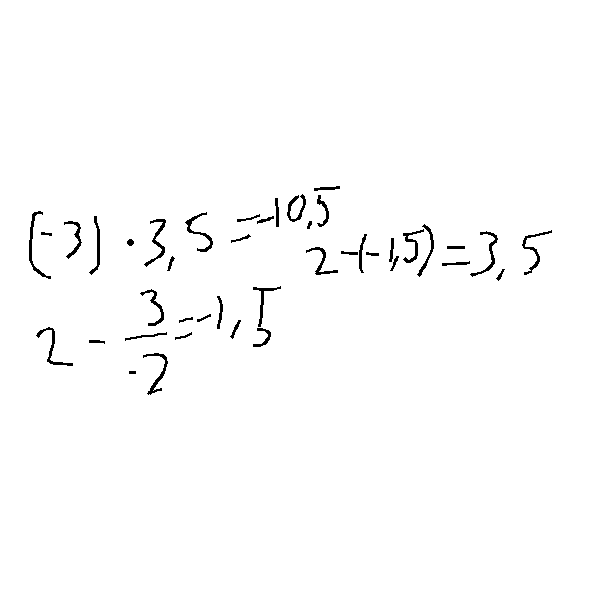 (-3) · 3,5 = -10,5
2 - (-1,5) = 3,5
2 - 3/-2 = -1,5